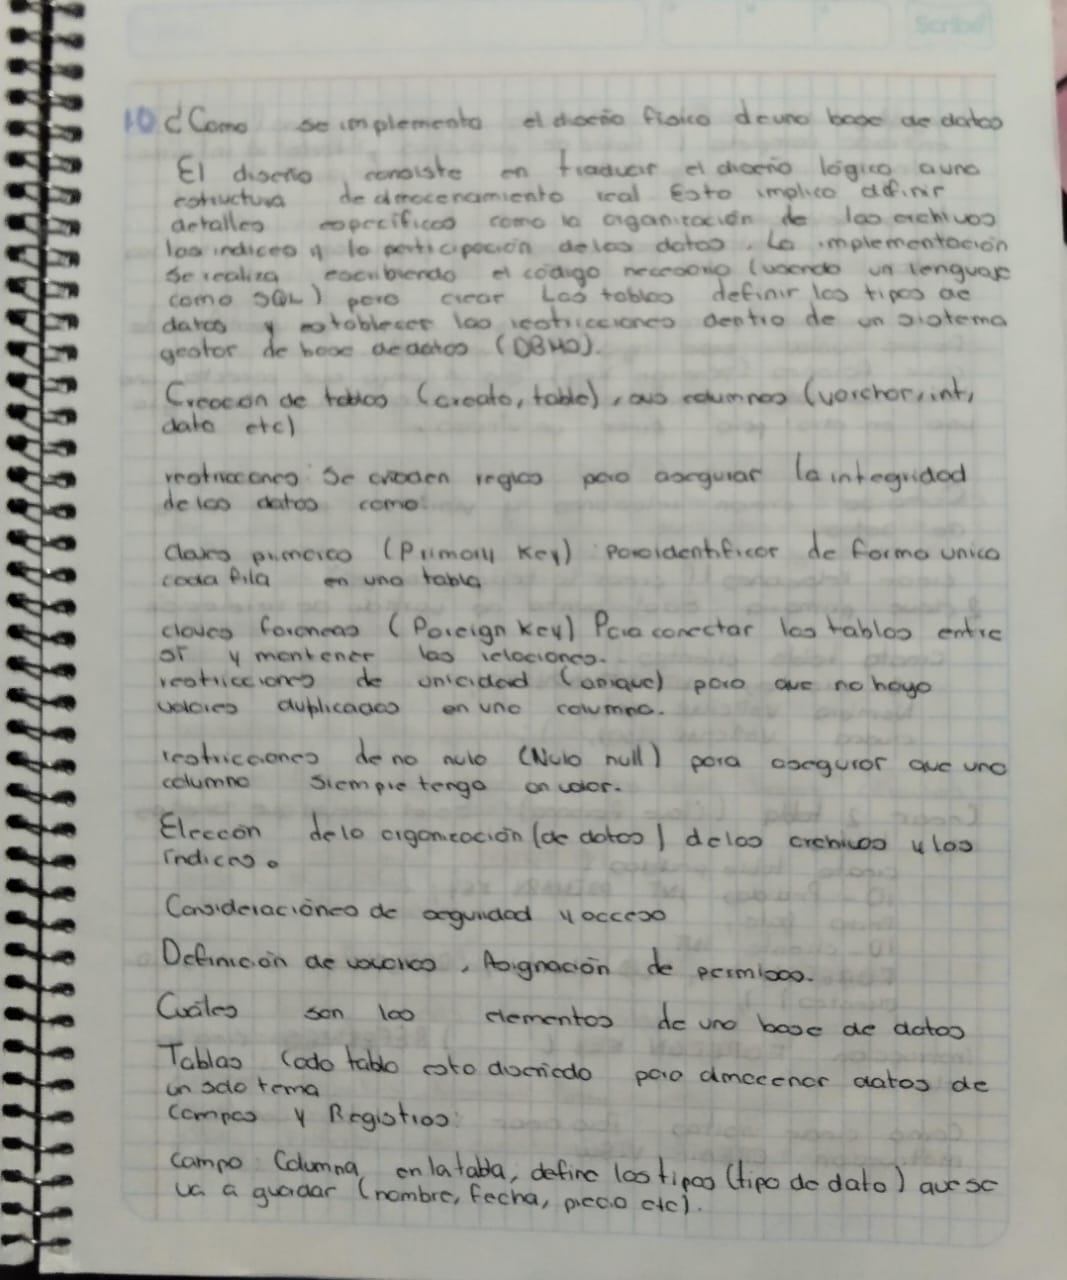 Scribe
10 ¿Como se implementa el diseño físico de una base de datos
El diseño consiste en traducir el diseño lógico a una
estructura de almacenamiento real Esto implica definir
detalles específicos como la organización de los archivos
los indices y la participación de los datos. La implementación
se realiza escribiendo el código necesario (usando un lenguaje
como SQL) para crear las tablas definir los tipos de
datos y establecer las restricciones dentro de un sistema
gestor de base de datos (DBMS).
Creación de tablas (create, table), sus columnas (varchar, int,
date etc)
restricciones: Se añaden reglas para asegurar la integridad
de los datos como:
Claves primarica (Primary Key) para identificar de forma unica
cada fila en una tabla
claves foraneas (Foreign Key) Para conectar las tablas entre
sí y mantener las relaciones.
restricciones de unicidad (unique) para que no haya
valores duplicados en una columna.
restricciones de no nulo (Nulo null) para asegurar que una
columna siempre tenga un valor.
Elección de la organización (de datos) de los archivos y los
índices.
Consideraciónes de seguridad y acceso
Definición de usuarios, Asignación de permisos.
Cuáles son los elementos de una base de datos
Tablas Cada tabla esta diseñada para almacenar datos de
un solo tema
Campos y Registros:
campo: Columna en la tabla, define los tipos (tipo de dato) que se
va a guardar (nombre, fecha, precio etc).